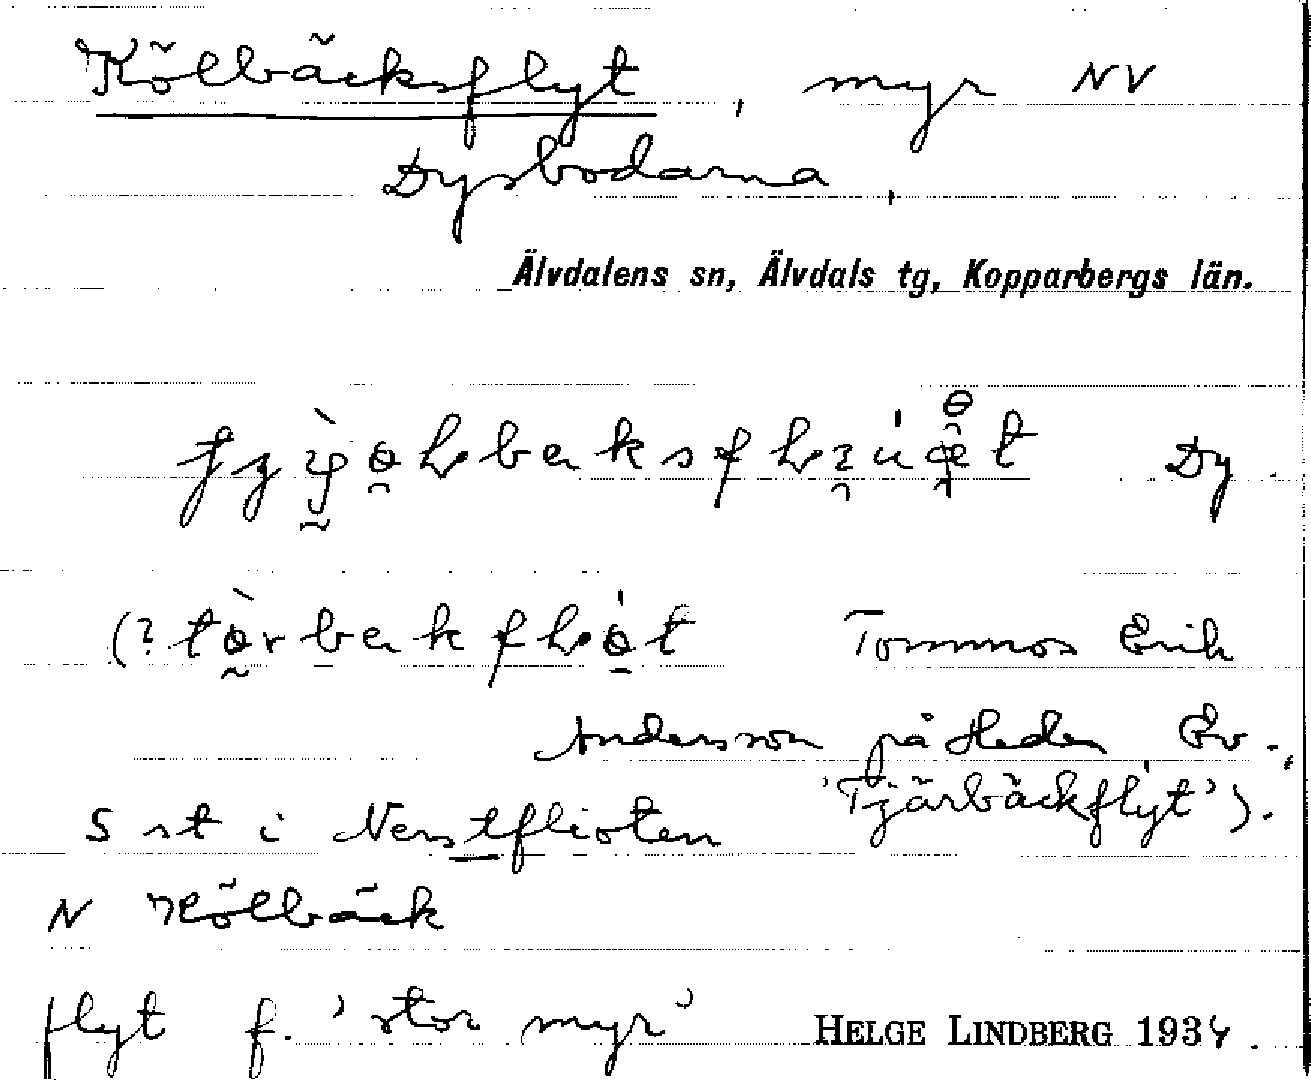 Kölbäcksflyt, myr NV
Dysbodarna,
Älvdalens sn, Älvdals tg, Kopparbergs län.
Dy.
(? Tommos Erik
Andersson på Heden Ev.,
'Tjärbäckflyt').
S st i Nerstflioten
N Kölbäck
flyt f. 'stor myr'
HELGE LINDBERG 1934.